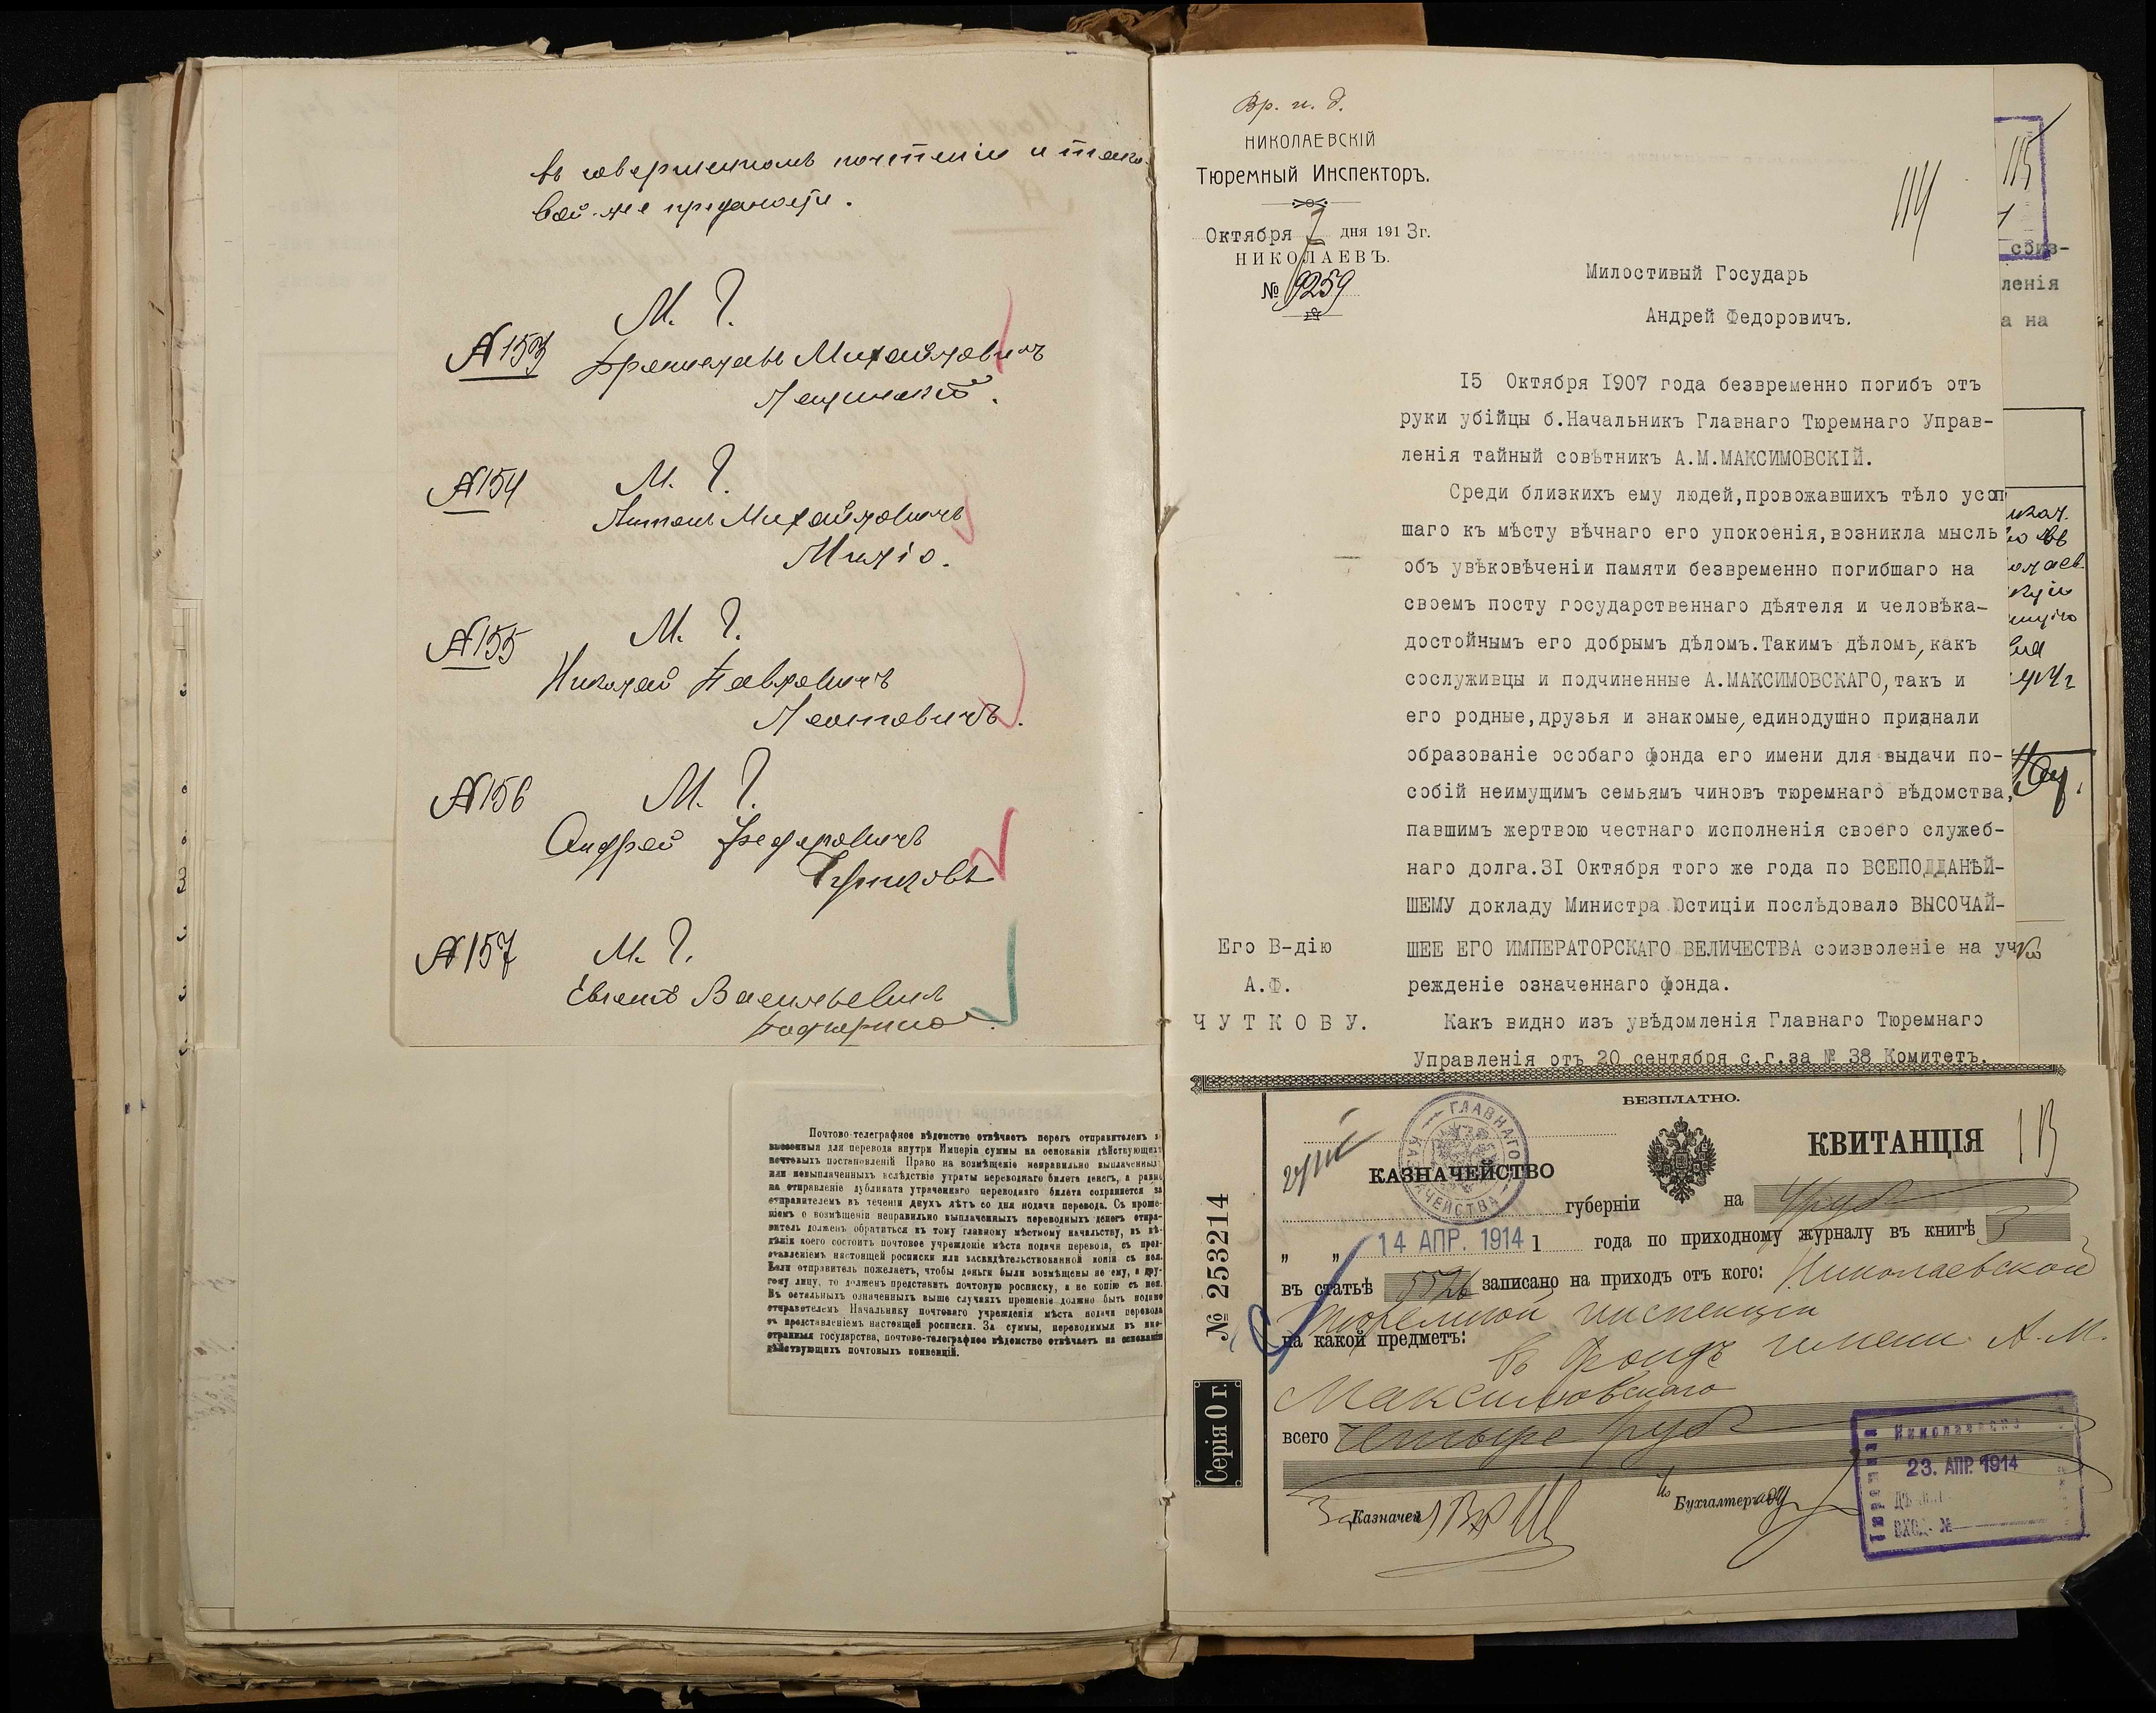 въ совершенномъ почтеніи и тако-
вой-же преданности.
№153
М. Г.
Брониславъ Михайловичъ
Лещинскій.
№154
М. Г.
Антонъ Михайловичъ
№155
М. Г.
Николай Павловичъ
Леонтовичъ.
№156
М. Г.
Андрей Федоровичъ
Чутковъ
№157
М. Г.
Евгеній Васильевичъ
Почтово-телеграфное вѣдомство отвѣчаетъ передъ отправителемъ за
внесенныя для перевода внутри Имперіи суммы на основаніи дѣйствующихъ
почтовыхъ постановленій Право на возмѣщеніе неправильно выплаченныхъ
или невыплаченныхъ вслѣдствіе утраты переводнаго билета денегъ, а равно
на отправленіе дубликата утраченнаго переводнаго билета сохраняется за
отправителемъ въ теченіи двухъ лѣтъ со дня подачи перевода. Съ проше-
ніемъ о возмѣщеніи неправильно выплаченныхъ переводныхъ денегъ отпра-
витель долженъ обратиться къ тому главному мѣстному начальству, въ вѣ-
дѣніи коего состоитъ почтовое учрежденіе мѣста подачи перевода, съ пред-
ставленіемъ настоящей росписки или засвидѣтельствованной копіи съ нея.
Если отправитель пожелаетъ, чтобы деньги были возмѣщены не ему, а дру-
гому лицу, то долженъ представить почтовую росписку, а не копію съ нея.
Въ остальныхъ означенныхъ выше случаяхъ прошеніе должно быть подано
отправителемъ Начальнику почтоваго учрежденія мѣста подачи перевода
съ представленіемъ настоящей росписки. За суммы, переводимыя въ ино-
странныя государства, почтово-телеграфное вѣдомство отвѣчаетъ на основаніи
дѣйствующихъ почтовыхъ конвенцій.
Вр. и. д.
НИКОЛАЕВСКІЙ
Тюремный Инспекторъ.
Октября 7 дня 1913г.
НИКОЛАЕВЪ.
№ 9259
114
115
Милостивый Государь
Андрей Федоровичъ.
15 Октября 1907 года безвременно погибъ отъ
руки убійцы б.Начальникъ Главнаго Тюремнаго Управ-
ленія тайный совѣтникъ А.М.МАКСИМОВСКІЙ.
Среди близкихъ ему людей,провожавшихъ тѣло усоп
шаго къ мѣсту вѣчнаго его упокоенія,возникла мысль
объ увѣковѣченіи памяти безвременно погибшаго на
своемъ посту государственнаго дѣятеля и человѣка-
достойнымъ его добрымъ дѣломъ.Такимъ дѣломъ,какъ
сослуживцы и подчиненные А.МАКСИМОВСКАГО,такъ и
его родные,друзья и знакомые,единодушно признали
образованіе особаго фонда его имени для выдачи по-
собій неимущимъ семьямъ чиновъ тюремнаго вѣдомства,
павшимъ жертвою честнаго исполненія своего служеб-
наго долга.31 Октября того же года по ВСЕПОДДАНѢЙ-
ШЕМУ докладу Министра Юстиціи послѣдовало ВЫСОЧАЙ-
ШЕЕ ЕГО ИМПЕРАТОРСКАГО ВЕЛИЧЕСТВА соизволеніе на уч
режденіе означеннаго фонда.
Какъ видно изъ увѣдомленія Главнаго Тюремнаго
Управленія отъ 20 сентября с.г.за № 38 Комитетъ.
Его В-дію
А.Ф.
ЧУТКОВУ.
сбиз-
ленія
а на
БЕЗПЛАТНО.
ГЛАВНАГО КАЗНАЧЕЙСТВА
КВИТАНЦІЯ
113
КАЗНАЧЕЙСТВО
губерніи
на 4 руб
„ „ 14 АПР. 1914 1 года по приходному журналу въ книгѣ 3
въ статьѣ 5526 записано на приходъ отъ кого: Николаевской
Тюремной инспекціи
на какой предметъ: въ фондъ имени А.М.
Максимовскаго
всего четыре руб
За Казначей
Бухгалтеръ
№ 253214
Серія 0 г.
Николаевская
Тюремная
23. АПР. 1914
ВХОД. №